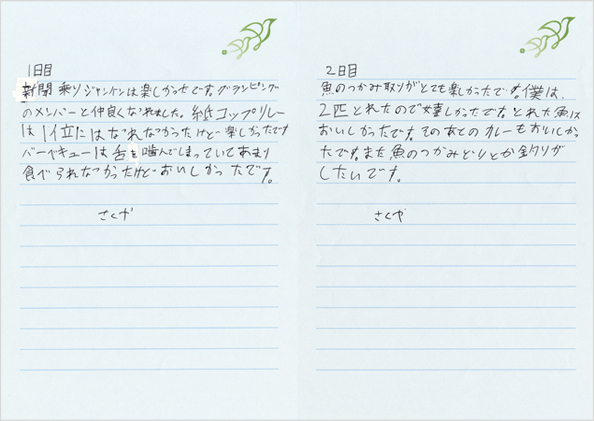 1日目
新聞乗りジャンケンは楽しかったです。グランピング
のメンバーと仲良くなれました。紙コップリレー
は1位にはなれなかったけど楽しかったです
バーベキューは舌を噛んでしまっていてあまり
食べられなかったけどおいしかったです。
さくや
2日目
魚のつかみ取りがとても楽しかったです。僕は、
2匹とれたので嬉しかったです。とれた魚は
おいしかったです。そのあとのカレーもおいしかっ
たです。また魚のつかみどりとか釣りが
したいです。
さくや